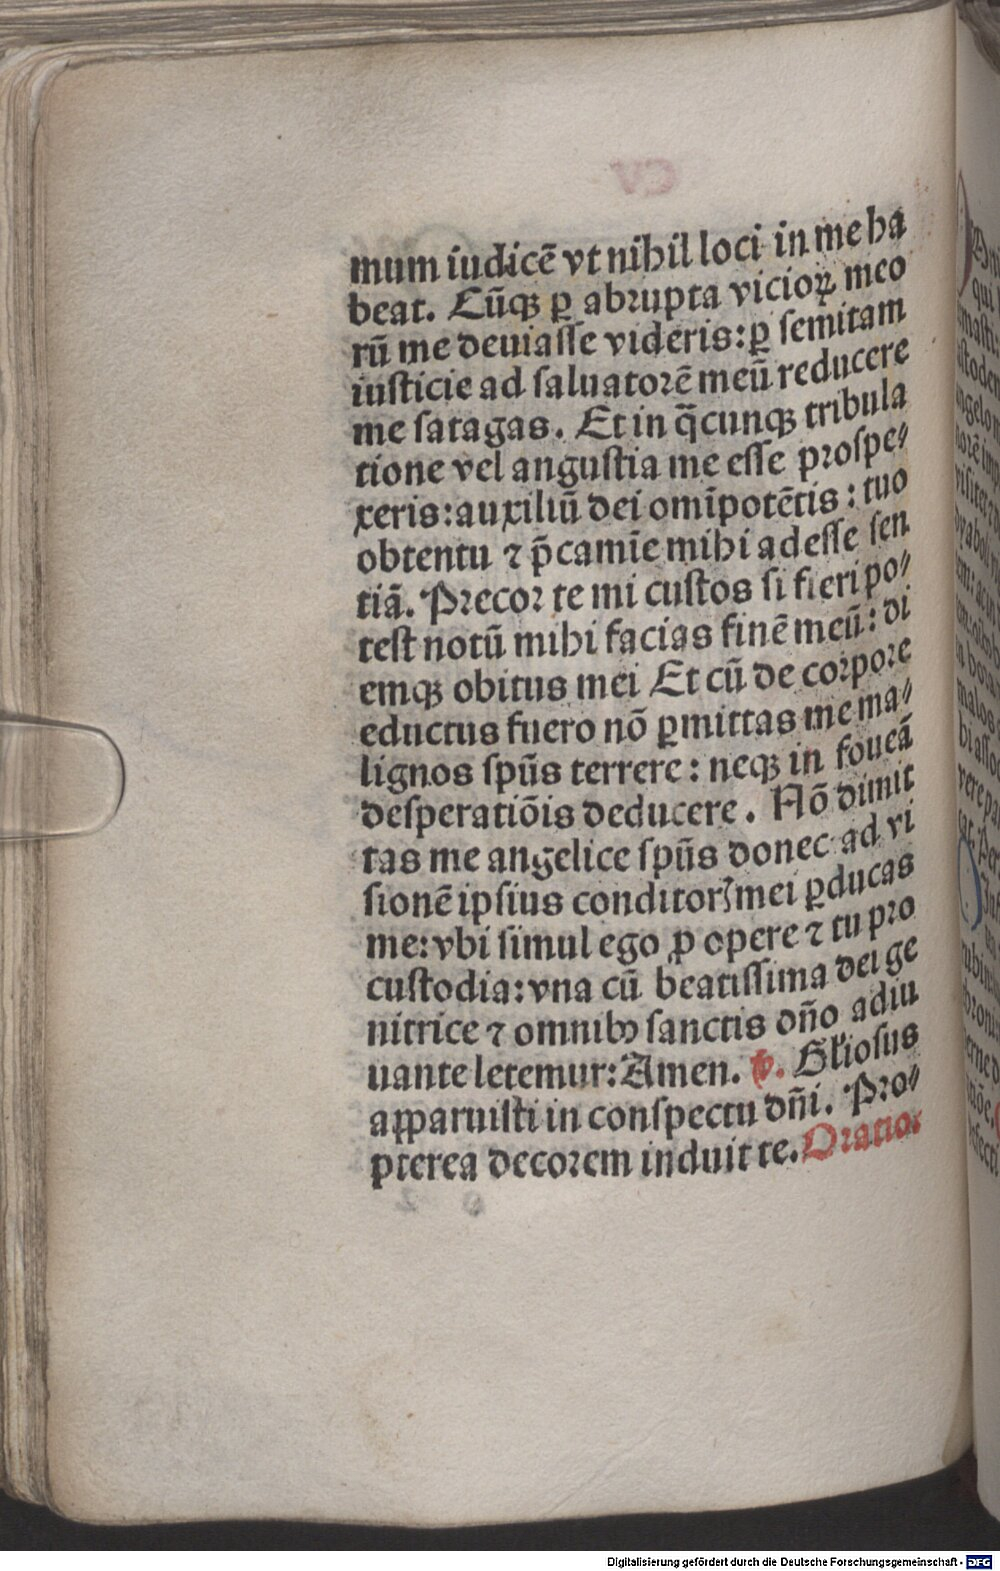 mum iudicē vt nihil loci in me ha
beat. Cūqꝫ ꝑ abrupta vicioꝝ meo
rū me deuiasse videris: ꝑ semitam
iusticie ad saluatorē meū reducere
me satagas. Et in q̄cunqꝫ tribula
tione vel angustia me esse prospe⸗
xeris: auxiliū dei omīpotētis: tuo
obtentu ⁊ p̄camīe mihi adesse sen
tiā. Precor te mi custos si fieri po⸗
test notū mihi facias finē meū: di
emqꝫ obitus mei Et cū de corpore
eductus fuero nō ꝑmittas me ma⸗
lignos spūs terrere: neqꝫ in foueā
desperatiōis deducere. Nō dimit
tas me angelice spūs donec ad vi
sionē ipsius conditorꝭ mei ꝑducas
me: vbi simul ego ꝓ opere ⁊ tu pro
custodia: vna cū beatissima dei ge
nitrice ⁊ omnibꝰ sanctis dn̄o adiu
uante letemur: Amen. ℣. Gl̄iosus
apparuisti in conspectu dn̄i. Pro⸗
pterea decorem induit te. Oratio.
Digitalisierung gefördert durch die Deutsche Forschungsgemeinschaft - DFG